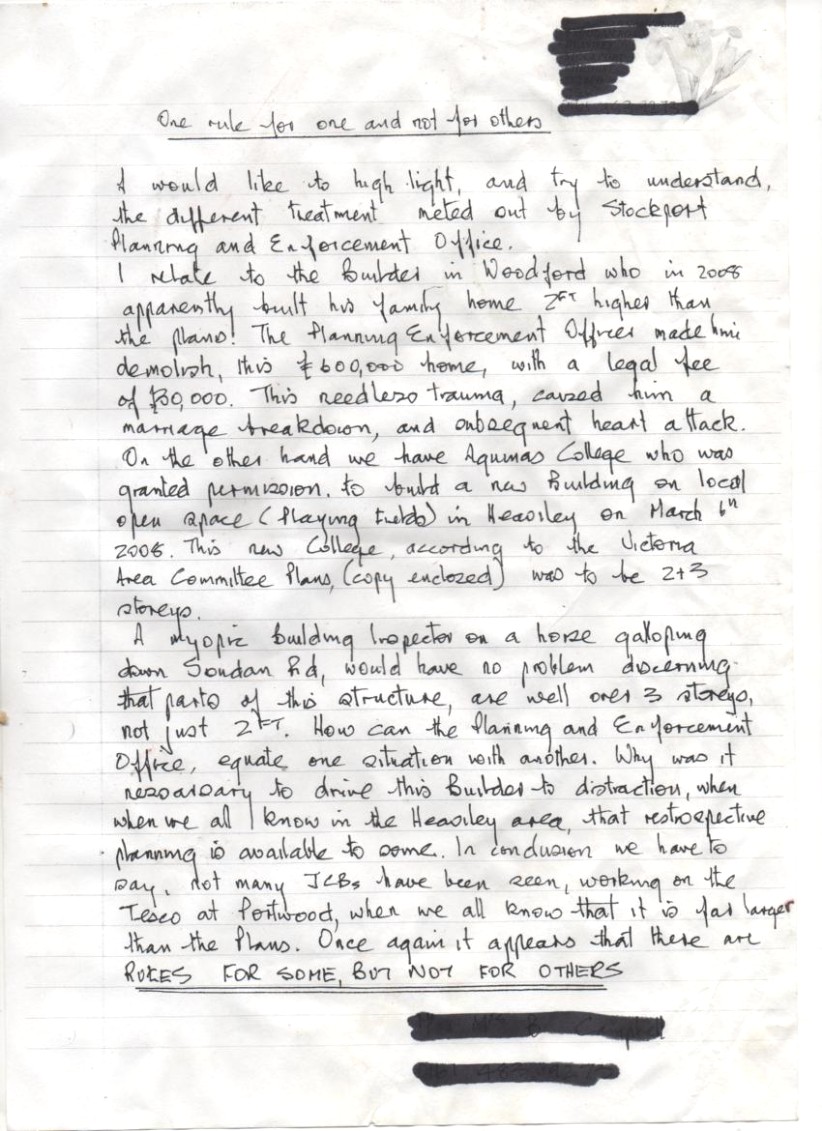 One rule for one and not for others
I would like to high light, and try to understand,
the different treatment meted out by Stockport
Planning and Enforcement Office.
I relate to the Builder in Woodford who in 2008
apparently built his family home 2FT higher than
the plans! The Planning Enforcement Officer made him
demolish, this £600,000 home, with a legal fee
of £30,000. This needless trauma, caused him a
marriage breakdown, and subsequent heart attack.
On the other hand we have Aquinas College who was
granted permission. to build a new Building on local
open space (Playing Fields) in Heaviley on March 6th
2008. This new College, according to the Victoria
Area Committee Plans, (copy enclosed) was to be 2+3
storeys.
A myopic building Inspector on a horse galloping
down Soudan Rd, would have no problem discerning
that parts of this structure, are well over 3 storeys,
not just 2FT. How can the Planning and Enforcement
Office, equate one situation with another. Why was it
nessarsary to drive this Builder to distraction, when
when we all know in the Heaviley area, that restrospective
planning is available to some. In conclusion we have to
say, not many JCBs have been seen, working on the
Tesco at Portwood, when we all know that it is far larger
than the Plans. Once again it appears that there are
RULES FOR SOME, BUT NOT FOR OTHERS